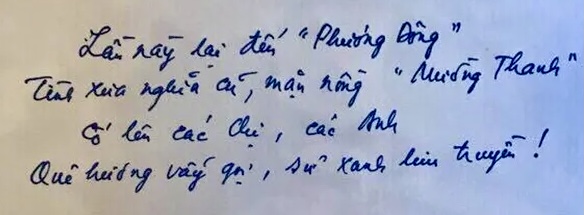 Lần này lại đến "Phương Đông"
Tình xưa nghĩa cũ, mặn nồng "Mường Thanh"
Cố lên các chị, các Anh
Quê hương vẫy gọi, sử xanh lưu truyền!